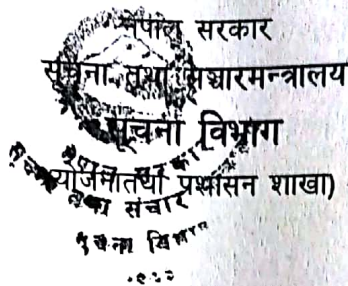 नेपाल सरकार
सूचना तथा सञ्चारमन्त्रालय
सूचना विभाग
योजनातथा प्रशासन शाखा)
नेपाल सरकार
सूचना तथा संचार
सूचना विभाग